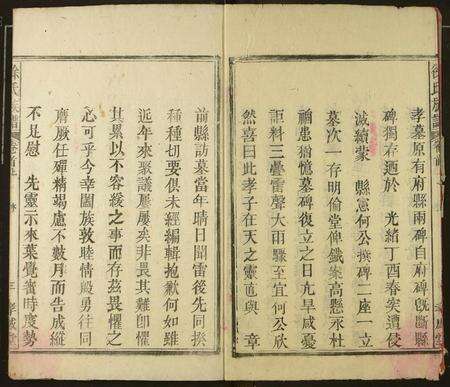 徐氏族譜
孝墓原有府縣兩碑自府碑旣斷縣
碑獨存廼於 光緒丁酉春突遭侵
滅續蒙 縣憲何公撰碑二座一立
墓次一存明倫堂俾鐵案高懸永杜
禍患猶憶墓碑復立之日亢旱咸憂
詎料三疊雷聲大雨驟至宜何公欣
然喜曰此孝子在天之靈直與 章
前縣訪墓當年晴日聞雷後先同揆
種種切要俱未經編輯抱歉何如雖
近年來聚議屢屢矣非畏其難卽懼
其累以不容緩之事而存茲畏懼之
心可乎今幸闔族敦睦情殷勇往同
膺厥任殫精竭慮不數月而告成縱
不足慰 先靈示來葉覺舊時度勢
徐氏族譜 卷首